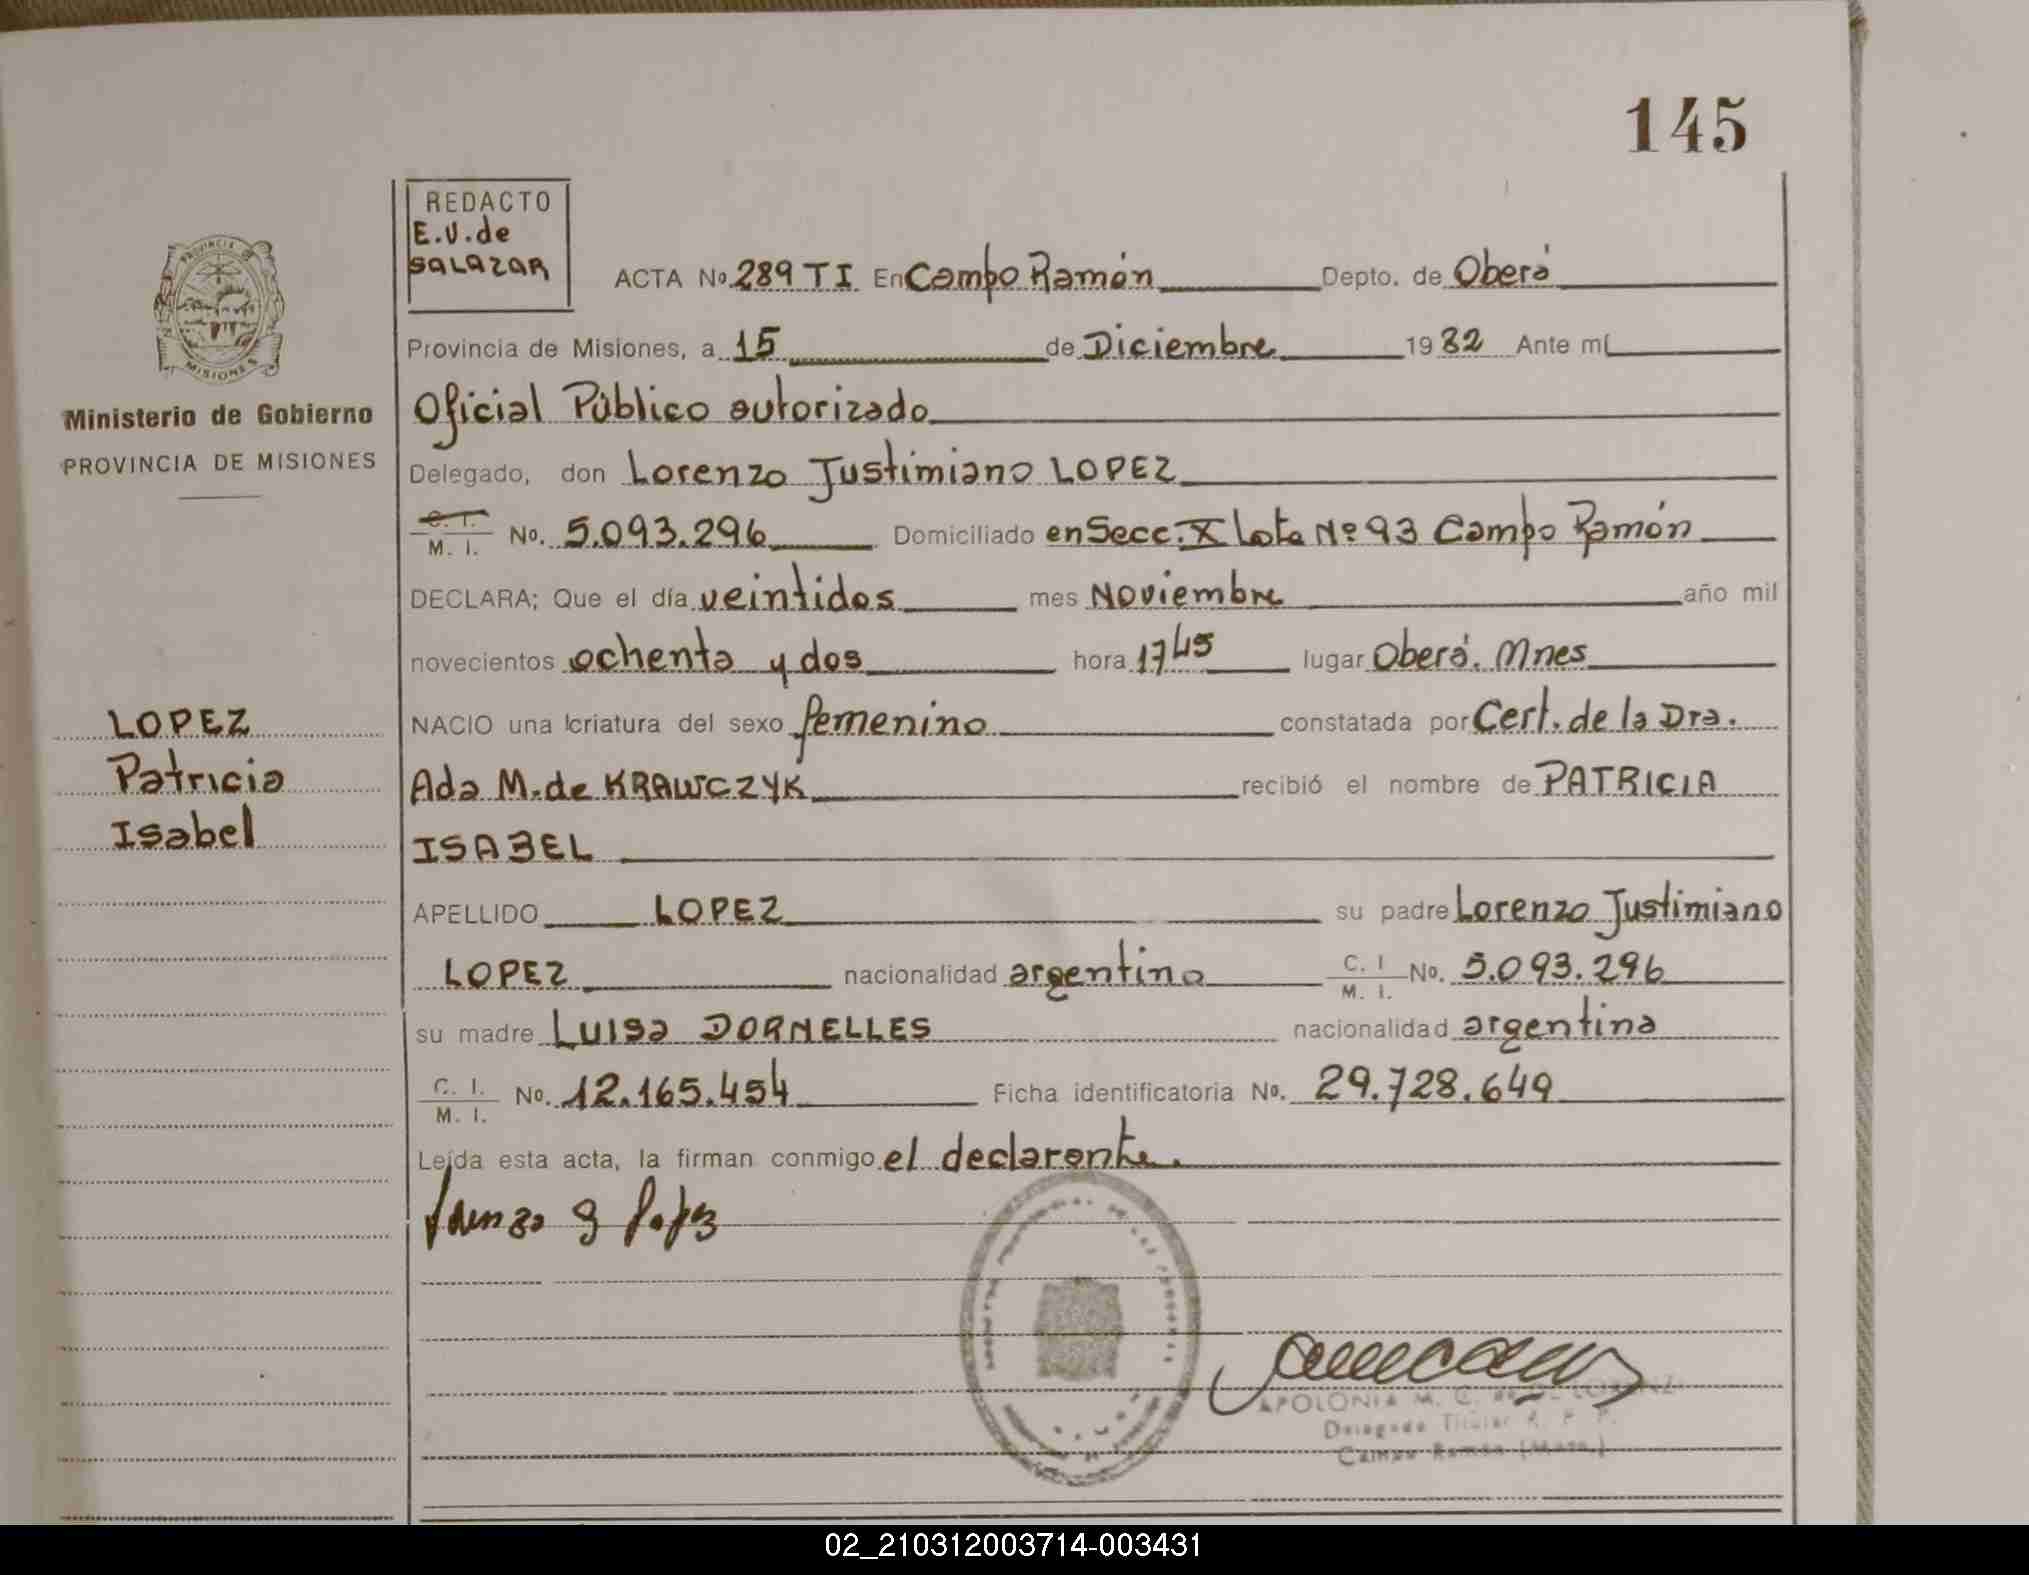 145
REDACTO
E.V. de
SALAZAR
ACTA No. 289 TI En Campo Ramón Depto. de Oberá
Provincia de Misiones, a 15 de Diciembre 1982 Ante mí
Oficial Público autorizado
Delegado, don Lorenzo Justimiano LOPEZ
C. I. M. I. No. 5.093.296 Domiciliado en Secc. X Lote Nº 93 Campo Ramón
DECLARA; Que el día veintidos mes Noviembre año mil
novecientos ochenta y dos hora 17 45 lugar Oberá. Mnes
NACIO una criatura del sexo femenino constatada por Cert. de la Dra.
Ada M. de KRAWCZYK recibió el nombre de PATRICIA
ISABEL
APELLIDO LOPEZ su padre Lorenzo Justimiano
LOPEZ nacionalidad argentino C. I M. I. No. 5.093.296
su madre Luisa DORNELLES nacionalidad argentina
C. I. M. I. No. 12.165.454 Ficha identificatoria No. 29.728.649
Leída esta acta, la firman conmigo el declarante.
Lorenzo J Lopez
APOLONIA M. C. de DE LORENZI
Delegada Titular R. P. P.
Campo Ramón (Mnes.)
PROVINCIA DE
MISIONES
Ministerio de Gobierno
PROVINCIA DE MISIONES
LOPEZ
Patricia
Isabel
02_210312003714-003431